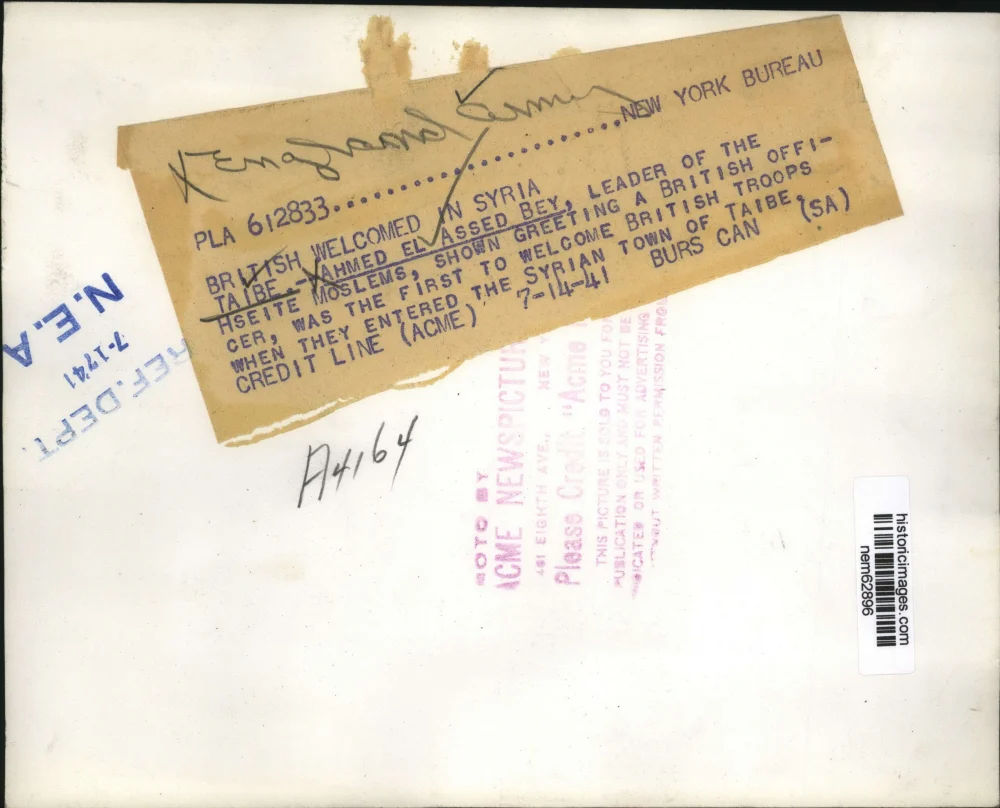 England Army
PLA 612833........................NEW YORK BUREAU
BRITISH WELCOMED IN SYRIA
TAIBE.--AHMED EL ASSED BEY, LEADER OF THE
HSEITE MOSLEMS, SHOWN GREETING A BRITISH OFFI-
CER, WAS THE FIRST TO WELCOME BRITISH TROOPS
WHEN THEY ENTERED THE SYRIAN TOWN OF TAIBE.
CREDIT LINE (ACME) 7-14-41 BURS CAN (SA)
N.E.A
7-17 41
REF. DEPT.
A4164
PHOTO BY
ACME NEWSPICTUR
461 EIGHTH AVE., NEW Y
Please Credit "Acme
THIS PICTURE IS SOLD TO YOU FO
PUBLICATION ONLY AND MUST NOT BE
ICATED OR USED FOR ADVERTISING
OUT WRITTEN PERMISSION FRO
historicimages.com
nem62896